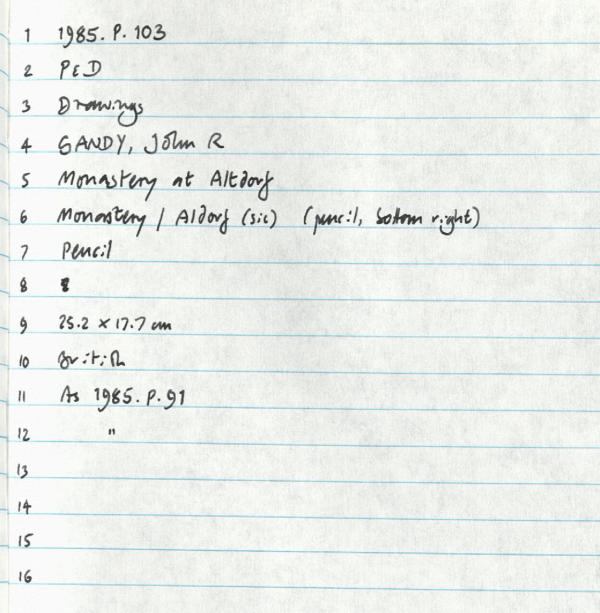 1 1985. P. 103
2 P&D
3 Drawings
4 GANDY, John R
5 Monastery at Altdorf
6 Monastery / Aldorf (sic) (pencil, bottom right)
7 Pencil
8
9 25.2 × 17.7 cm
10 British
11 As 1985. P. 91
12 "
13
14
15
16